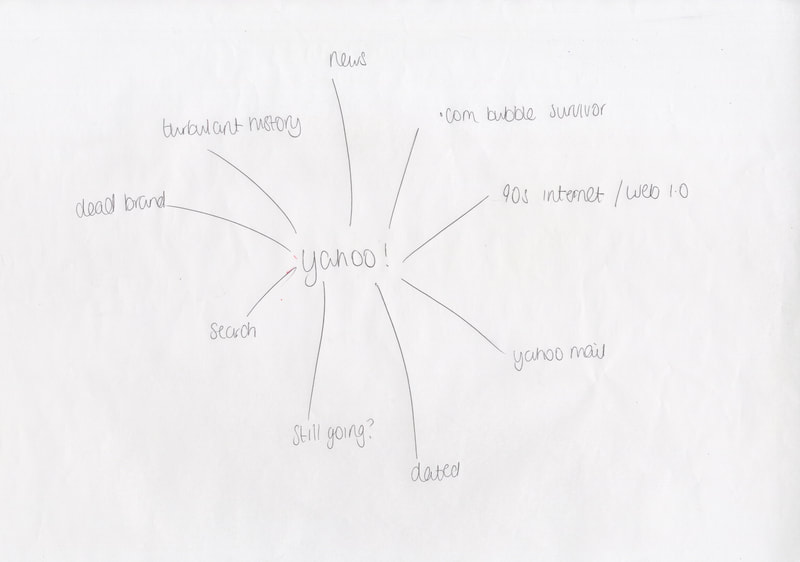 news
.com bubble survivor
turbulant history
90s internet / web 1.0
dead brand
yahoo!
search
yahoo mail
still going?
dated